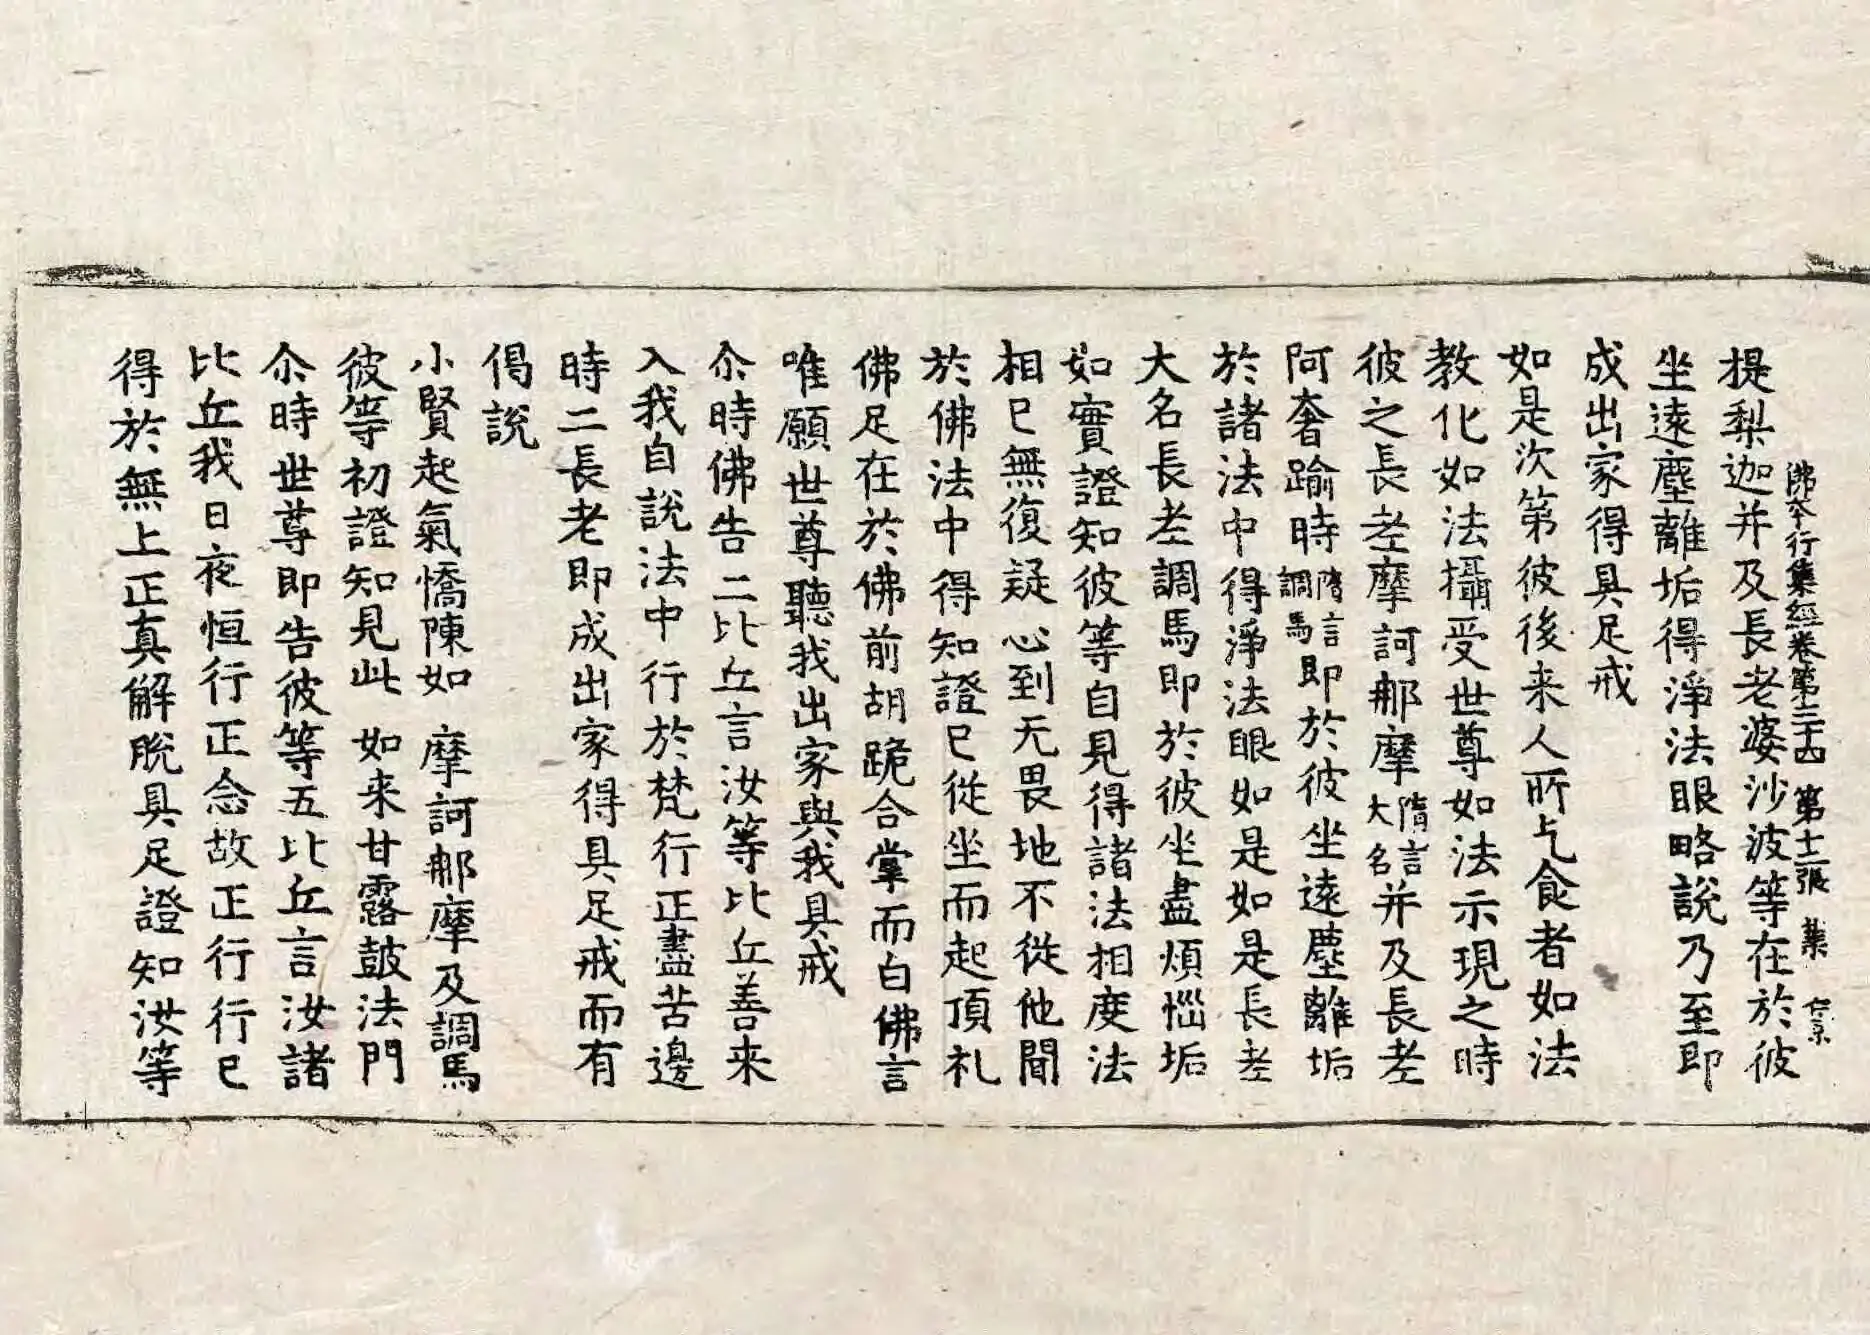 佛本行集經卷第三十四 第十一張 集
提梨迦并及長老婆沙波等在於彼
坐遠塵離垢得淨法眼略說乃至即
成出家得具足戒
如是次第彼後来人所乞食者如法
教化如法攝受世尊如法示現之時
彼之長老摩訶那摩隋言大名并及長老
阿奢踰時隋言調馬即於彼坐遠塵離垢
於諸法中得淨法眼如是如是長老
大名長老調馬即於彼坐盡煩惱垢
如實證知彼等自見得諸法相度法
相已無復疑心到无畏地不從他聞
於佛法中得知證已從坐而起頂礼
佛足在於佛前胡跪合掌而白佛言
唯願世尊聽我出家與我具戒
尒時佛告二比丘言汝等比丘善来
入我自說法中行於梵行正盡苦邊
時二長老即成出家得具足戒而有
偈說
小賢起氣憍陳如 摩訶那摩及調馬
彼等初證知見此 如来甘露鼓法門
尒時世尊即告彼等五比丘言汝諸
比丘我日夜恒行正念故正行行已
得於無上正真解脫具足證知汝等